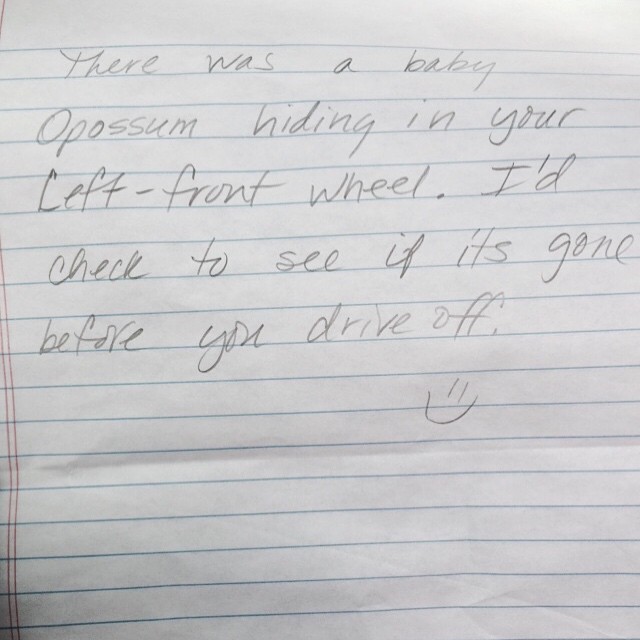 There was a baby
Opossum hiding in your
Left-front wheel. I'd
check to see if its gone
before you drive off.